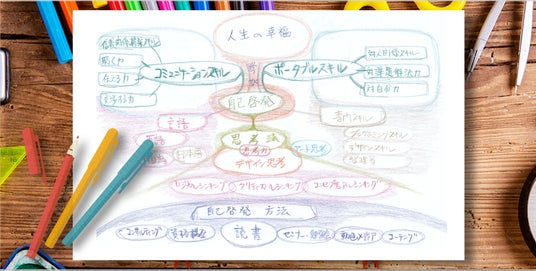 人生の幸福
コミュニケーションスキル
聞く力
伝える力
ポータブルスキル
対人関係スキル
問題解決力
対自己力
自己啓発
言語
英語
日本語
思考法
思考力
アート思考
デザイン思考
専門スキル
プログラミングスキル
デザインスキル
ロジカルシンキング
クリティカルシンキング
コンセプチュアルシンキング
自己啓発 方法
コンサルティング
資格検定
読書
セミナー・研修
動画メディア
コーチング